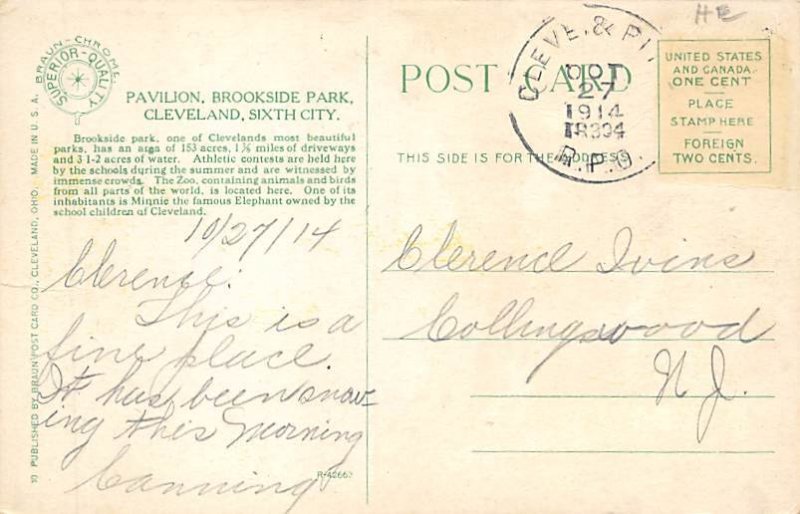 HE
BRAUN-CHROME
SUPERIOR-QUALITY
PAVILION, BROOKSIDE PARK,
CLEVELAND, SIXTH CITY.
Brookside park, one of Clevelands most beautiful
parks, has an area of 153 acres, 1½ miles of driveways
and 3 1-2 acres of water. Athletic contests are held here
by the schools during the summer and are witnessed by
immense crowds. The Zoo, containing animals and birds
from all parts of the world, is located here. One of its
inhabitants is Minnie the famous Elephant owned by the
school children of Cleveland.
10 PUBLISHED BY BRAUN POST CARD CO., CLEVELAND, OHIO. MADE IN U.S.A.
10/27/14
Clerence:
This is a
fine place.
It has been snow-
ing this morning
Canning
R-42662
POST CARD
THIS SIDE IS FOR THE ADDRESS
CLEVE. & PI
OCT
27
1914
R.P.O.
UNITED STATES
AND CANADA
ONE CENT
PLACE
STAMP HERE
FOREIGN
TWO CENTS.
Clerence Ivins
Collingswood
N J.